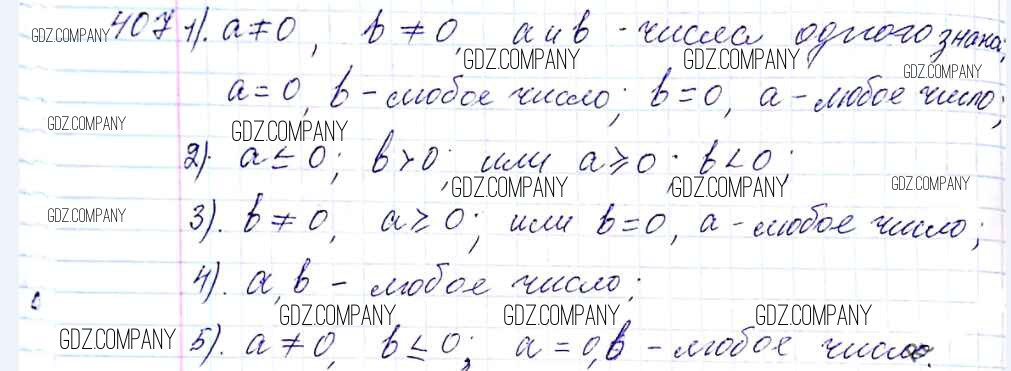 407 1). a ≠ 0, b ≠ 0, a и b - числа одного знака;
GDZ.COMPANY
GDZ.COMPANY GDZ.COMPANY GDZ.COMPANY
a = 0, b - любое число; b = 0, a - любое число;
GDZ.COMPANY GDZ.COMPANY
2). a ≤ 0; b > 0; или a ≥ 0; b < 0;
GDZ.COMPANY GDZ.COMPANY GDZ.COMPANY
GDZ.COMPANY 3). b ≠ 0, a ≥ 0; или b = 0, a - любое число;
4). a, b - любое число;
GDZ.COMPANY GDZ.COMPANY GDZ.COMPANY
GDZ.COMPANY 5). a ≠ 0, b ≤ 0; a = 0, b - любое число.